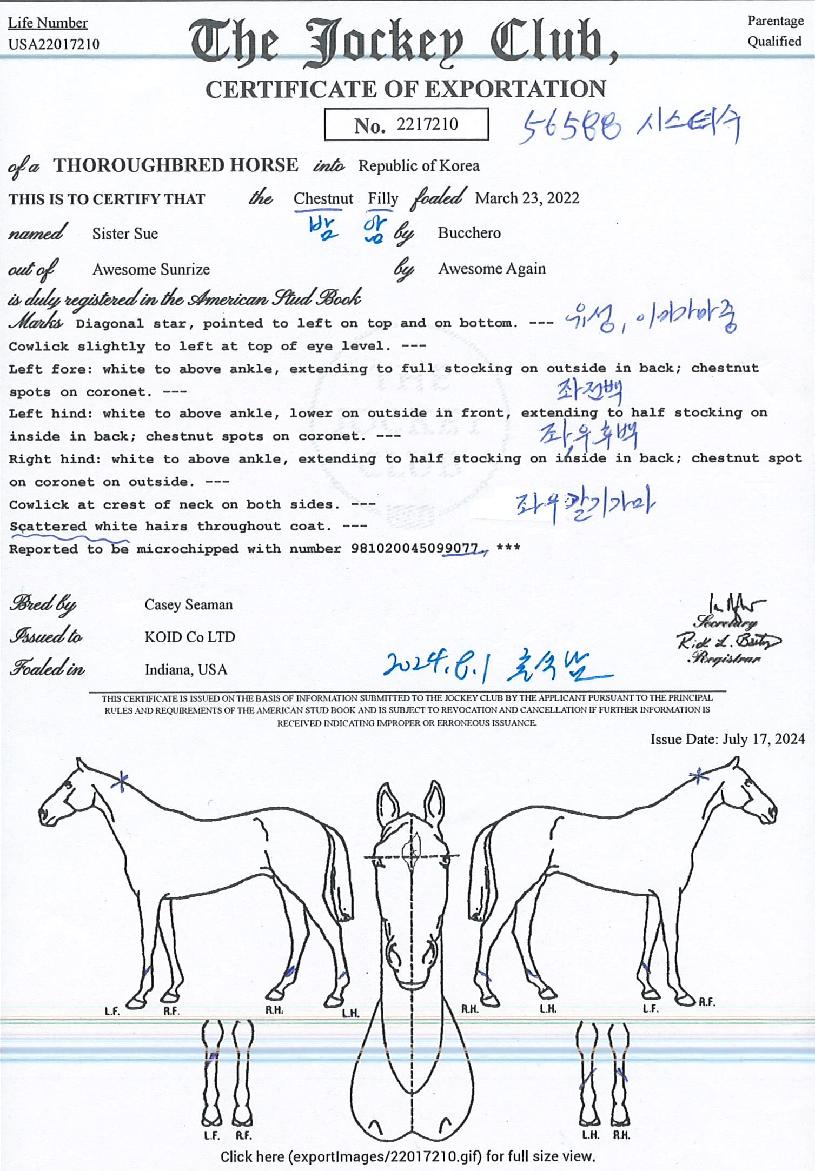 Life Number
USA22017210
The Jockey Club,
Parentage
Qualified
CERTIFICATE OF EXPORTATION
No. 2217210
56588 시스터수
of a THOROUGHBRED HORSE into Republic of Korea
THIS IS TO CERTIFY THAT the Chestnut Filly foaled March 23, 2022
밤 암
named Sister Sue by Bucchero
out of Awesome Sunrize by Awesome Again
is duly registered in the American Stud Book
Marks Diagonal star, pointed to left on top and on bottom. --- 유성, 이마가마중
Cowlick slightly to left at top of eye level. ---
Left fore: white to above ankle, extending to full stocking on outside in back; chestnut
spots on coronet. --- 좌전백
Left hind: white to above ankle, lower on outside in front, extending to half stocking on
inside in back; chestnut spots on coronet. --- 좌,우후백
Right hind: white to above ankle, extending to half stocking on inside in back; chestnut spot
on coronet on outside. ---
Cowlick at crest of neck on both sides. --- 좌우갈기가마
Scattered white hairs throughout coat. ---
Reported to be microchipped with number 981020045099077, ***
THE
JOCKEY
CLUB
Bred by Casey Seaman
Secretary
Issued to KOID Co LTD
Registrar
Foaled in Indiana, USA
2024.8.1
THIS CERTIFICATE IS ISSUED ON THE BASIS OF INFORMATION SUBMITTED TO THE JOCKEY CLUB BY THE APPLICANT PURSUANT TO THE PRINCIPAL
RULES AND REQUIREMENTS OF THE AMERICAN STUD BOOK AND IS SUBJECT TO REVOCATION AND CANCELLATION IF FURTHER INFORMATION IS
RECEIVED INDICATING IMPROPER OR ERRONEOUS ISSUANCE.
Issue Date: July 17, 2024
L.F. R.F. R.H. L.H. R.H. L.H. L.F. R.F.
L.F. R.F. L.H. R.H.
Click here (exportImages/22017210.gif) for full size view.